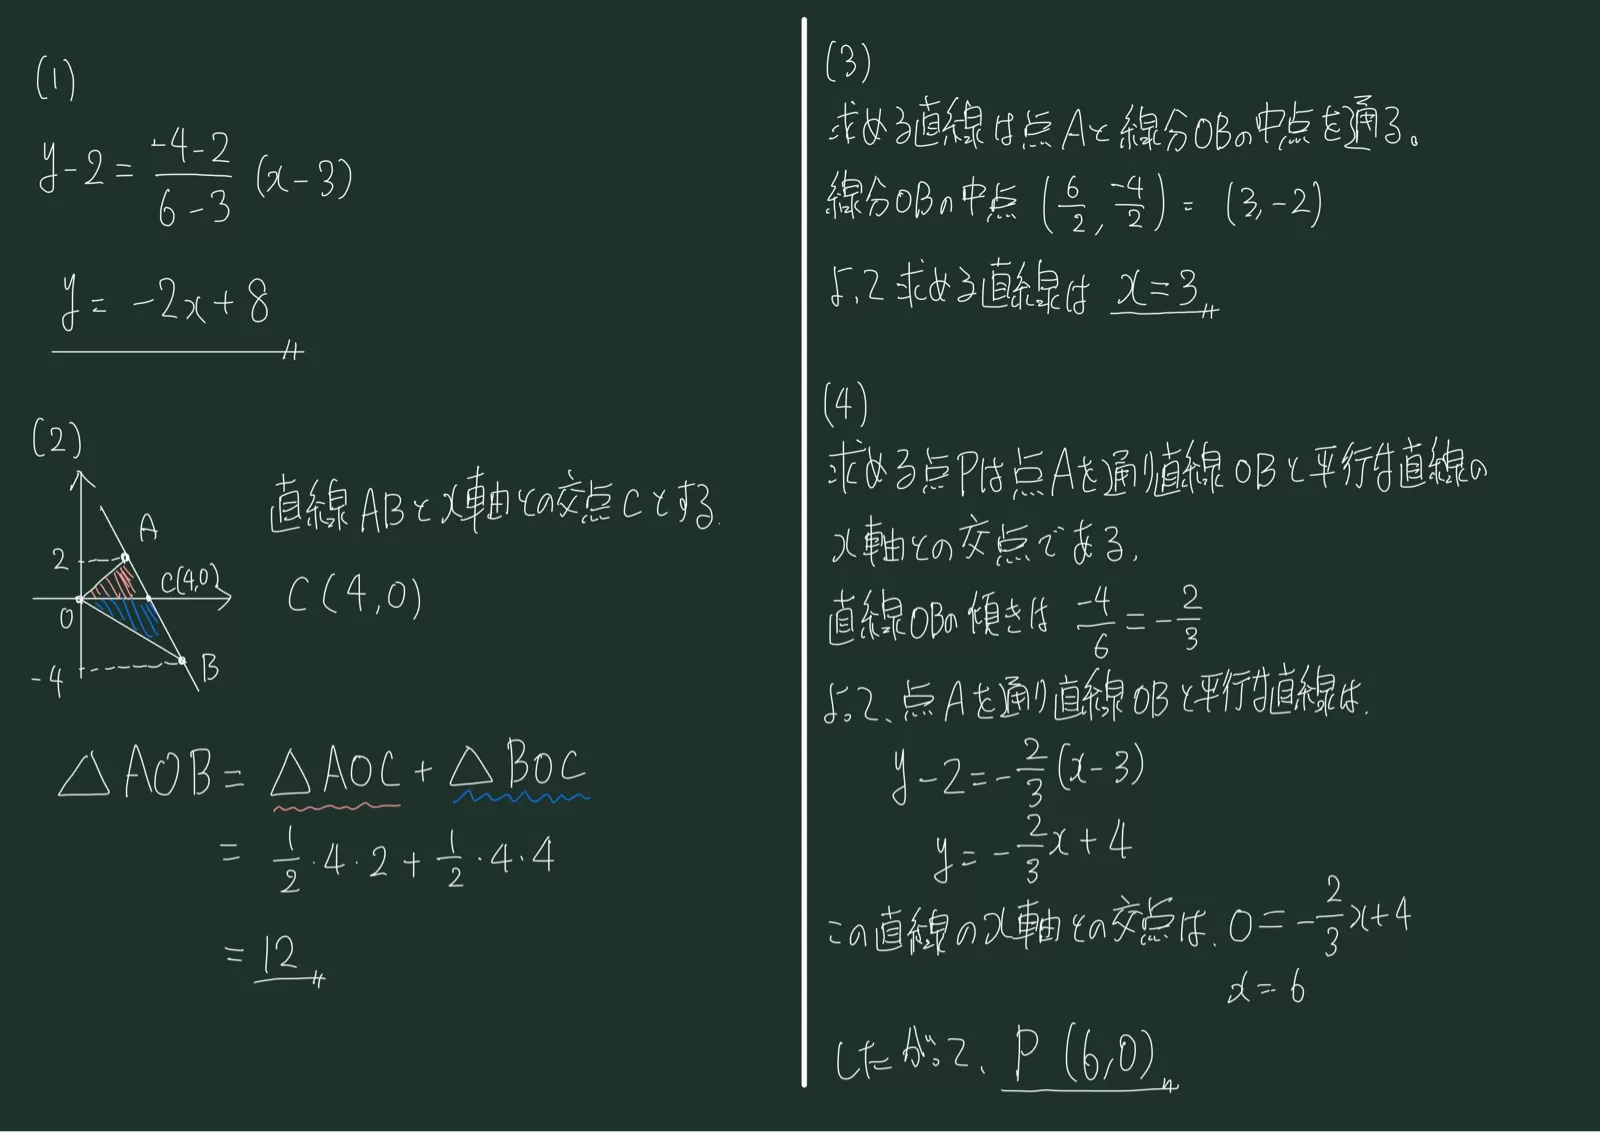 (1)
y-2 = \frac{-4-2}{6-3} (x-3)
y = -2x+8
(2)
直線ABとx軸との交点Cとする.
C(4,0)
A
2
C(4,0)
O
-4
B
△AOB = △AOC + △BOC
= \frac{1}{2}・4・2 + \frac{1}{2}・4・4
= 12
(3)
求める直線は点Aと線分OBの中点を通る。
線分OBの中点 (\frac{6}{2}, \frac{-4}{2}) = (3,-2)
よって求める直線は x=3
(4)
求める点Pは点Aを通り直線OBと平行な直線の
x軸との交点である.
直線OBの傾きは \frac{-4}{6} = -\frac{2}{3}
よって、点Aを通り直線OBと平行な直線は.
y-2 = -\frac{2}{3}(x-3)
y = -\frac{2}{3}x+4
この直線のx軸との交点は. 0 = -\frac{2}{3}x+4
x = 6
したがって、P(6,0)